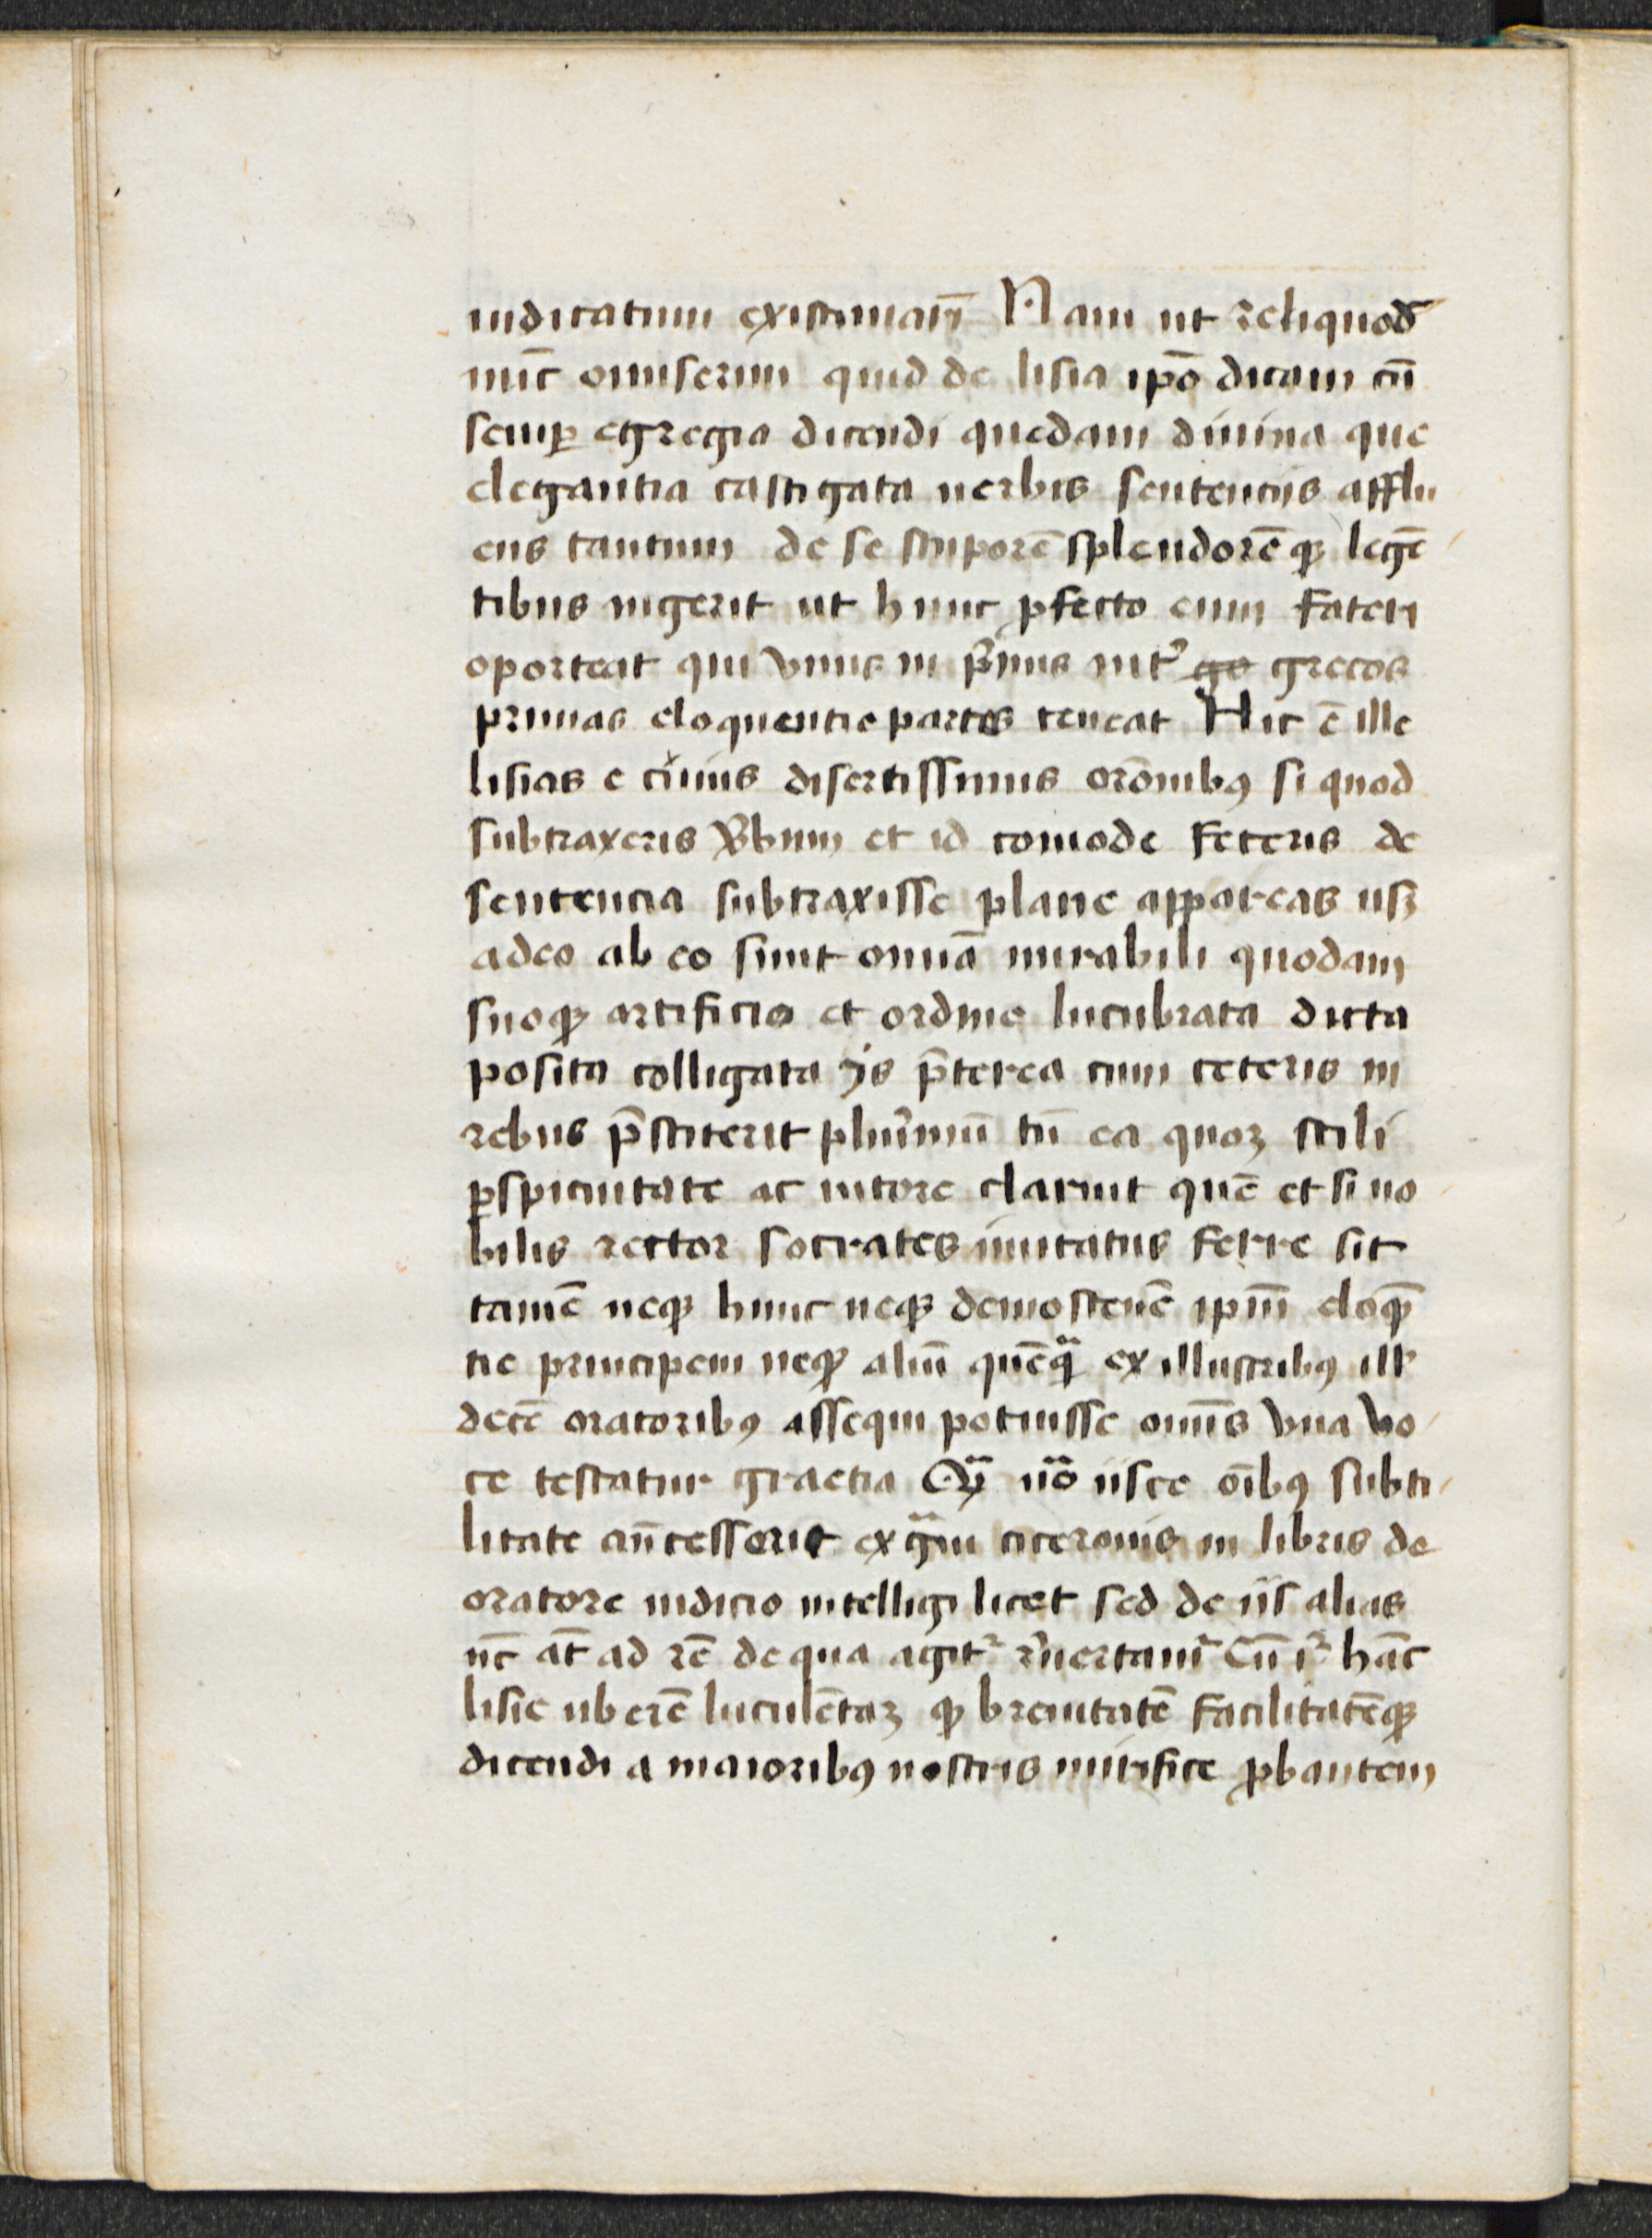 iudicatum existimaṅt Nam ut reliquos
nūc omiserim quid de lisia ipo̅ dicam cū
semꝑ egregia dicendi quedam diuina que
elegantia castigata uerbis sentenciis afflu
ens tantum de se stuporē splendorēqꝫ legē
tibus ingerit ut hunc ꝓfecto eum fateri
oporteat qui vnus in pͥmis intˀ ge grecos
primas eloquentie partes teneat Hic ē ille
lisias e cuius disertissimis orōnibꝰ si quod
subtraxeris v̉bum et id comode feceris de
sentencia subtraxisse plane appareas usꝫ
adeo ab eo sunt omīa mirabili quodam
suoqꝫ artificio et ordine lucubrata dicta
posita colligata ijs p̄terea cum ceteris in
rebus p̄stiterit plurimū tū ea quoꝫ stili
ꝑspicuitate ac nitore claruit quē et si no
bilis rector socrates imitatus ferre sit
tamē neqꝫ hunc neqꝫ demostenē ipm̄ eloqꝫ̄
tie principem neqꝫ aliū quēqͣ ex illustribꝰ ill'
decē oratoribꝰ assequi potuisse omīs vna vo
ce testatur graecia Qͣ uͦo iisce oībꝰ subti
litate an̄cesserit ex qͣm ciceronis in libris de
oratore iudicio intelligi licet sed de iis alias
nc̄ at̄ ad rē de qua agitˀ rͥuertamˀ Cū iˀ hāc
lisie uberē luculētaꝫ qꝫ breuitatē facilitatēqꝫ
dicendi a maioribꝰ nostris mirifice ꝓbantem